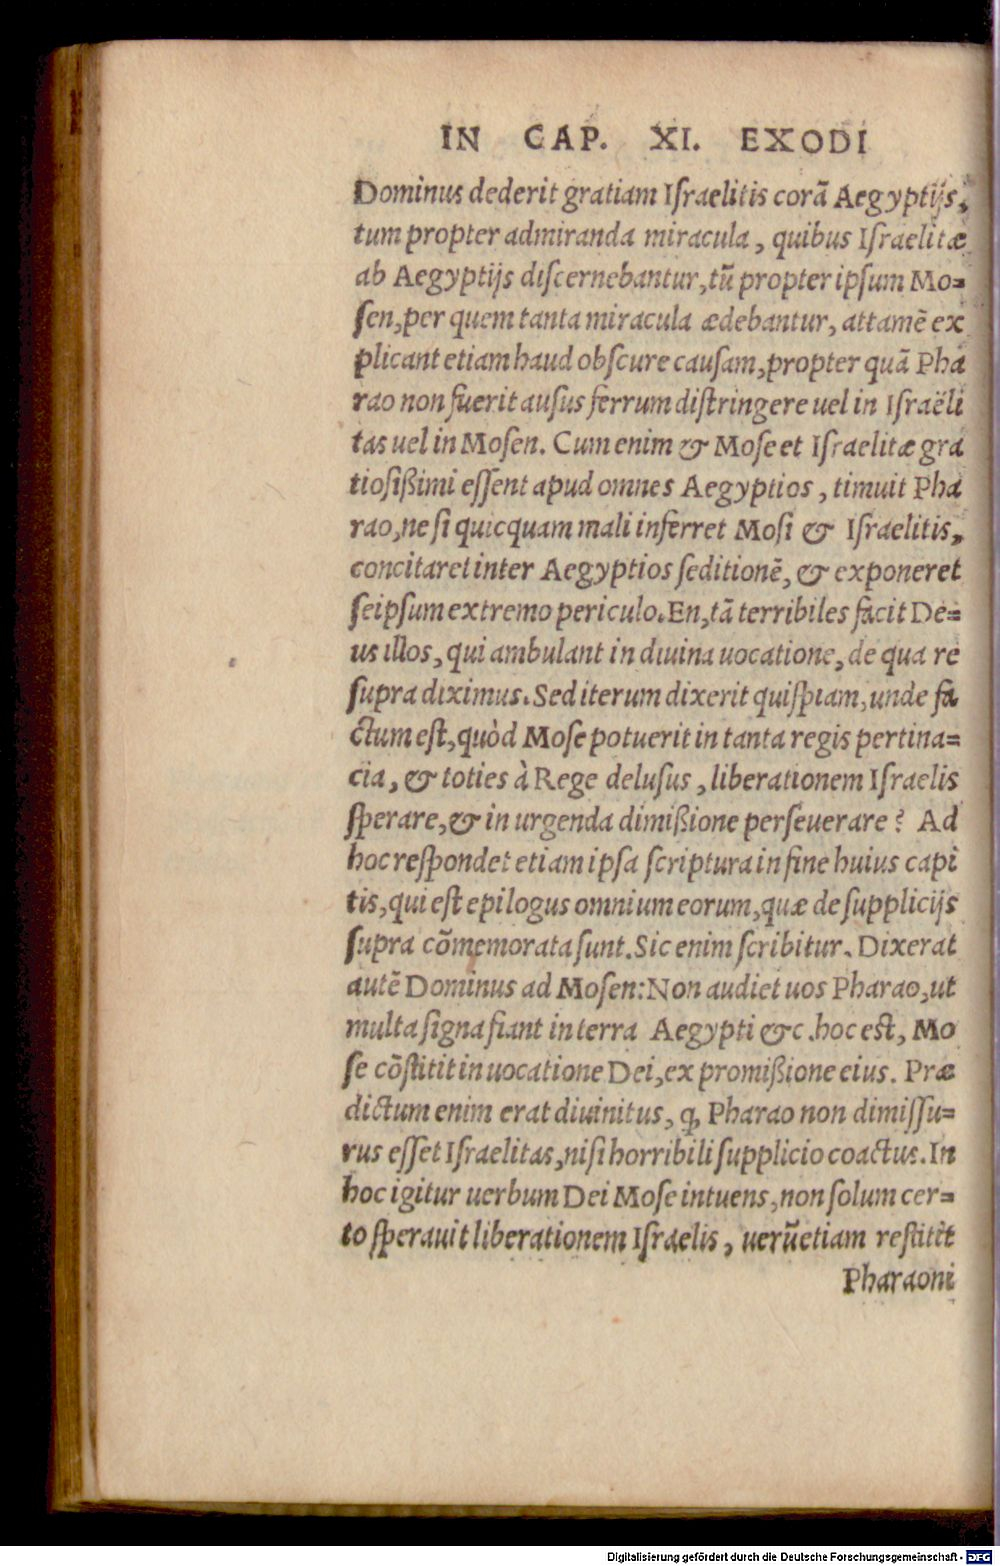 IN CAP. XI. EXODI
Dominus dederit gratiam Iſraelitis corã Aegyptijs,
tum propter admiranda miracula, quibus Iſraelitæ
ab Aegyptijs diſcernebantur, tũ propter ipſum Mo=
ſen, per quem tanta miracula ædebantur, attamẽ ex
plicant etiam haud obſcure cauſam, propter quã Pha
rao non fuerit auſus ferrum diſtringere uel in Iſraëli
tas uel in Moſen. Cum enim & Moſe et Iſraelitæ gra
tioſißimi eſſent apud omnes Aegyptios, timuit Pha
rao, ne ſi quicquam mali inferret Moſi & Iſraelitis,
concitaret inter Aegyptios ſeditionẽ, & exponeret
ſeipſum extremo periculo. En, tã terribiles facit De=
us illos, qui ambulant in diuina uocatione, de qua re
ſupra diximus. Sed iterum dixerit quiſpiam, unde fa
ctum eſt, quòd Moſe potuerit in tanta regis pertina=
cia, & toties à Rege deluſus, liberationem Iſraelis
ſperare, & in urgenda dimißione perſeuerare? Ad
hoc reſpondet etiam ipſa ſcriptura in fine huius capi
tis, qui eſt epilogus omnium eorum, quæ de ſupplicijs
ſupra cõmemorata ſunt. Sic enim ſcribitur. Dixerat
autẽ Dominus ad Moſen: Non audiet uos Pharao, ut
multa ſigna fiant in terra Aegypti &c. hoc eſt, Mo
ſe cõſtitit in uocatione Dei, ex promißione eius. Præ
dictum enim erat diuinitus, ꝙ Pharao non dimiſſu=
rus eſſet Iſraelitas, niſi horribili ſupplicio coactus. In
hoc igitur uerbum Dei Moſe intuens, non ſolum cer=
to ſperauit liberationem Iſraelis, uerũetiam reſtitit
Pharaoni
Digitalisierung gefördert durch die Deutsche Forschungsgemeinschaft - DFG